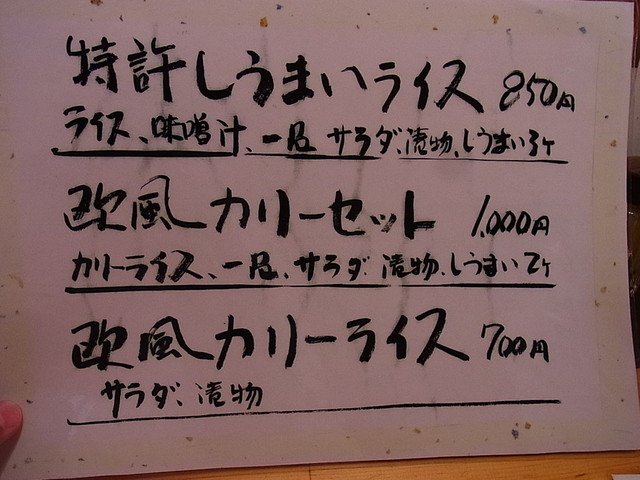 特許しうまいライス 850円
ライス、味噌汁、一品 サラダ、漬物、しうまい3ヶ
欧風カリーセット 1,000円
カリーライス、一品、サラダ、漬物、しうまい2ヶ
欧風カリーライス 700円
サラダ、漬物